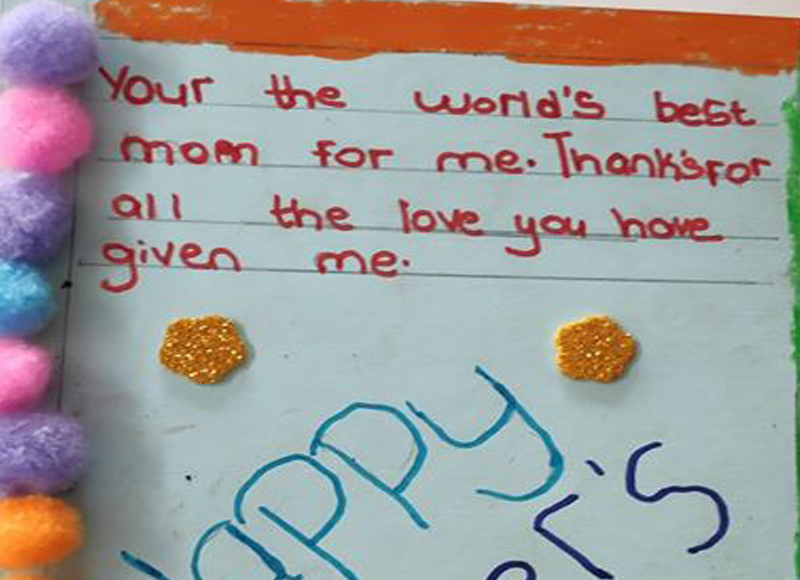 Your the world's best
mom for me. Thank'sfor
all the love you have
given me.
Happy
er's